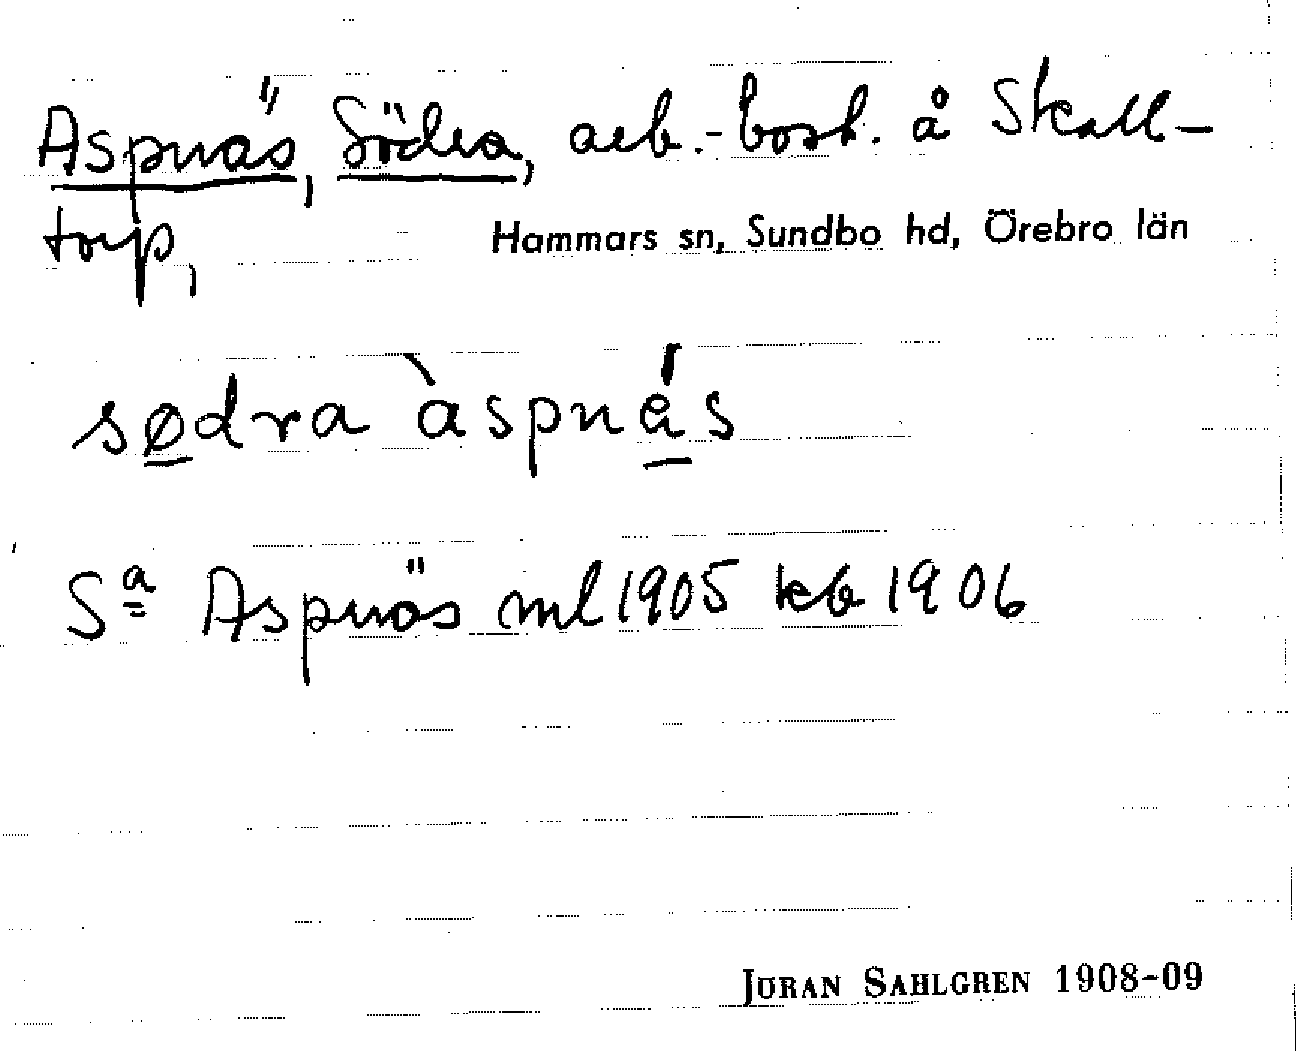 Aspnäs, Södra, arb.-bost. å Skall-
torp,
Hammars sn, Sundbo hd, Örebro län
sødra àspnä́s
Sª Aspnäs ml 1905 kb 1906
JÖRAN SAHLGREN 1908-09